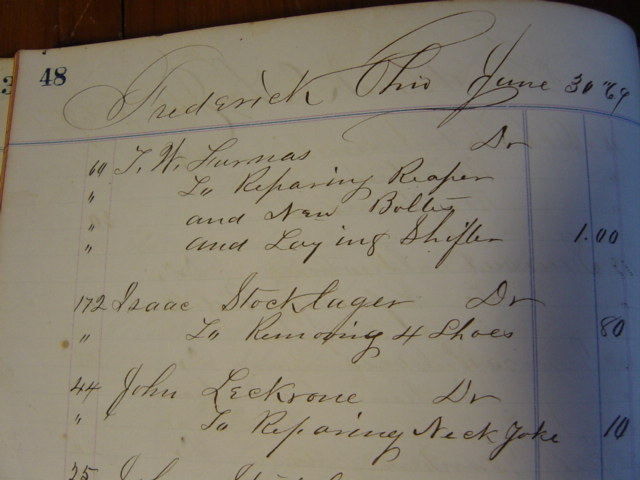 3 48
Frederick Ohio June 30 '69
60 T. W. Furnas Dr
" To Repairing Reaper
" and New Bolts
" and Laying Shifter 1.00
172 Isaac Stocklager Dr
" To Removing 4 Shoes 80
44 John Leckrone Dr
" To Repairing Neck Yoke 10
35 John